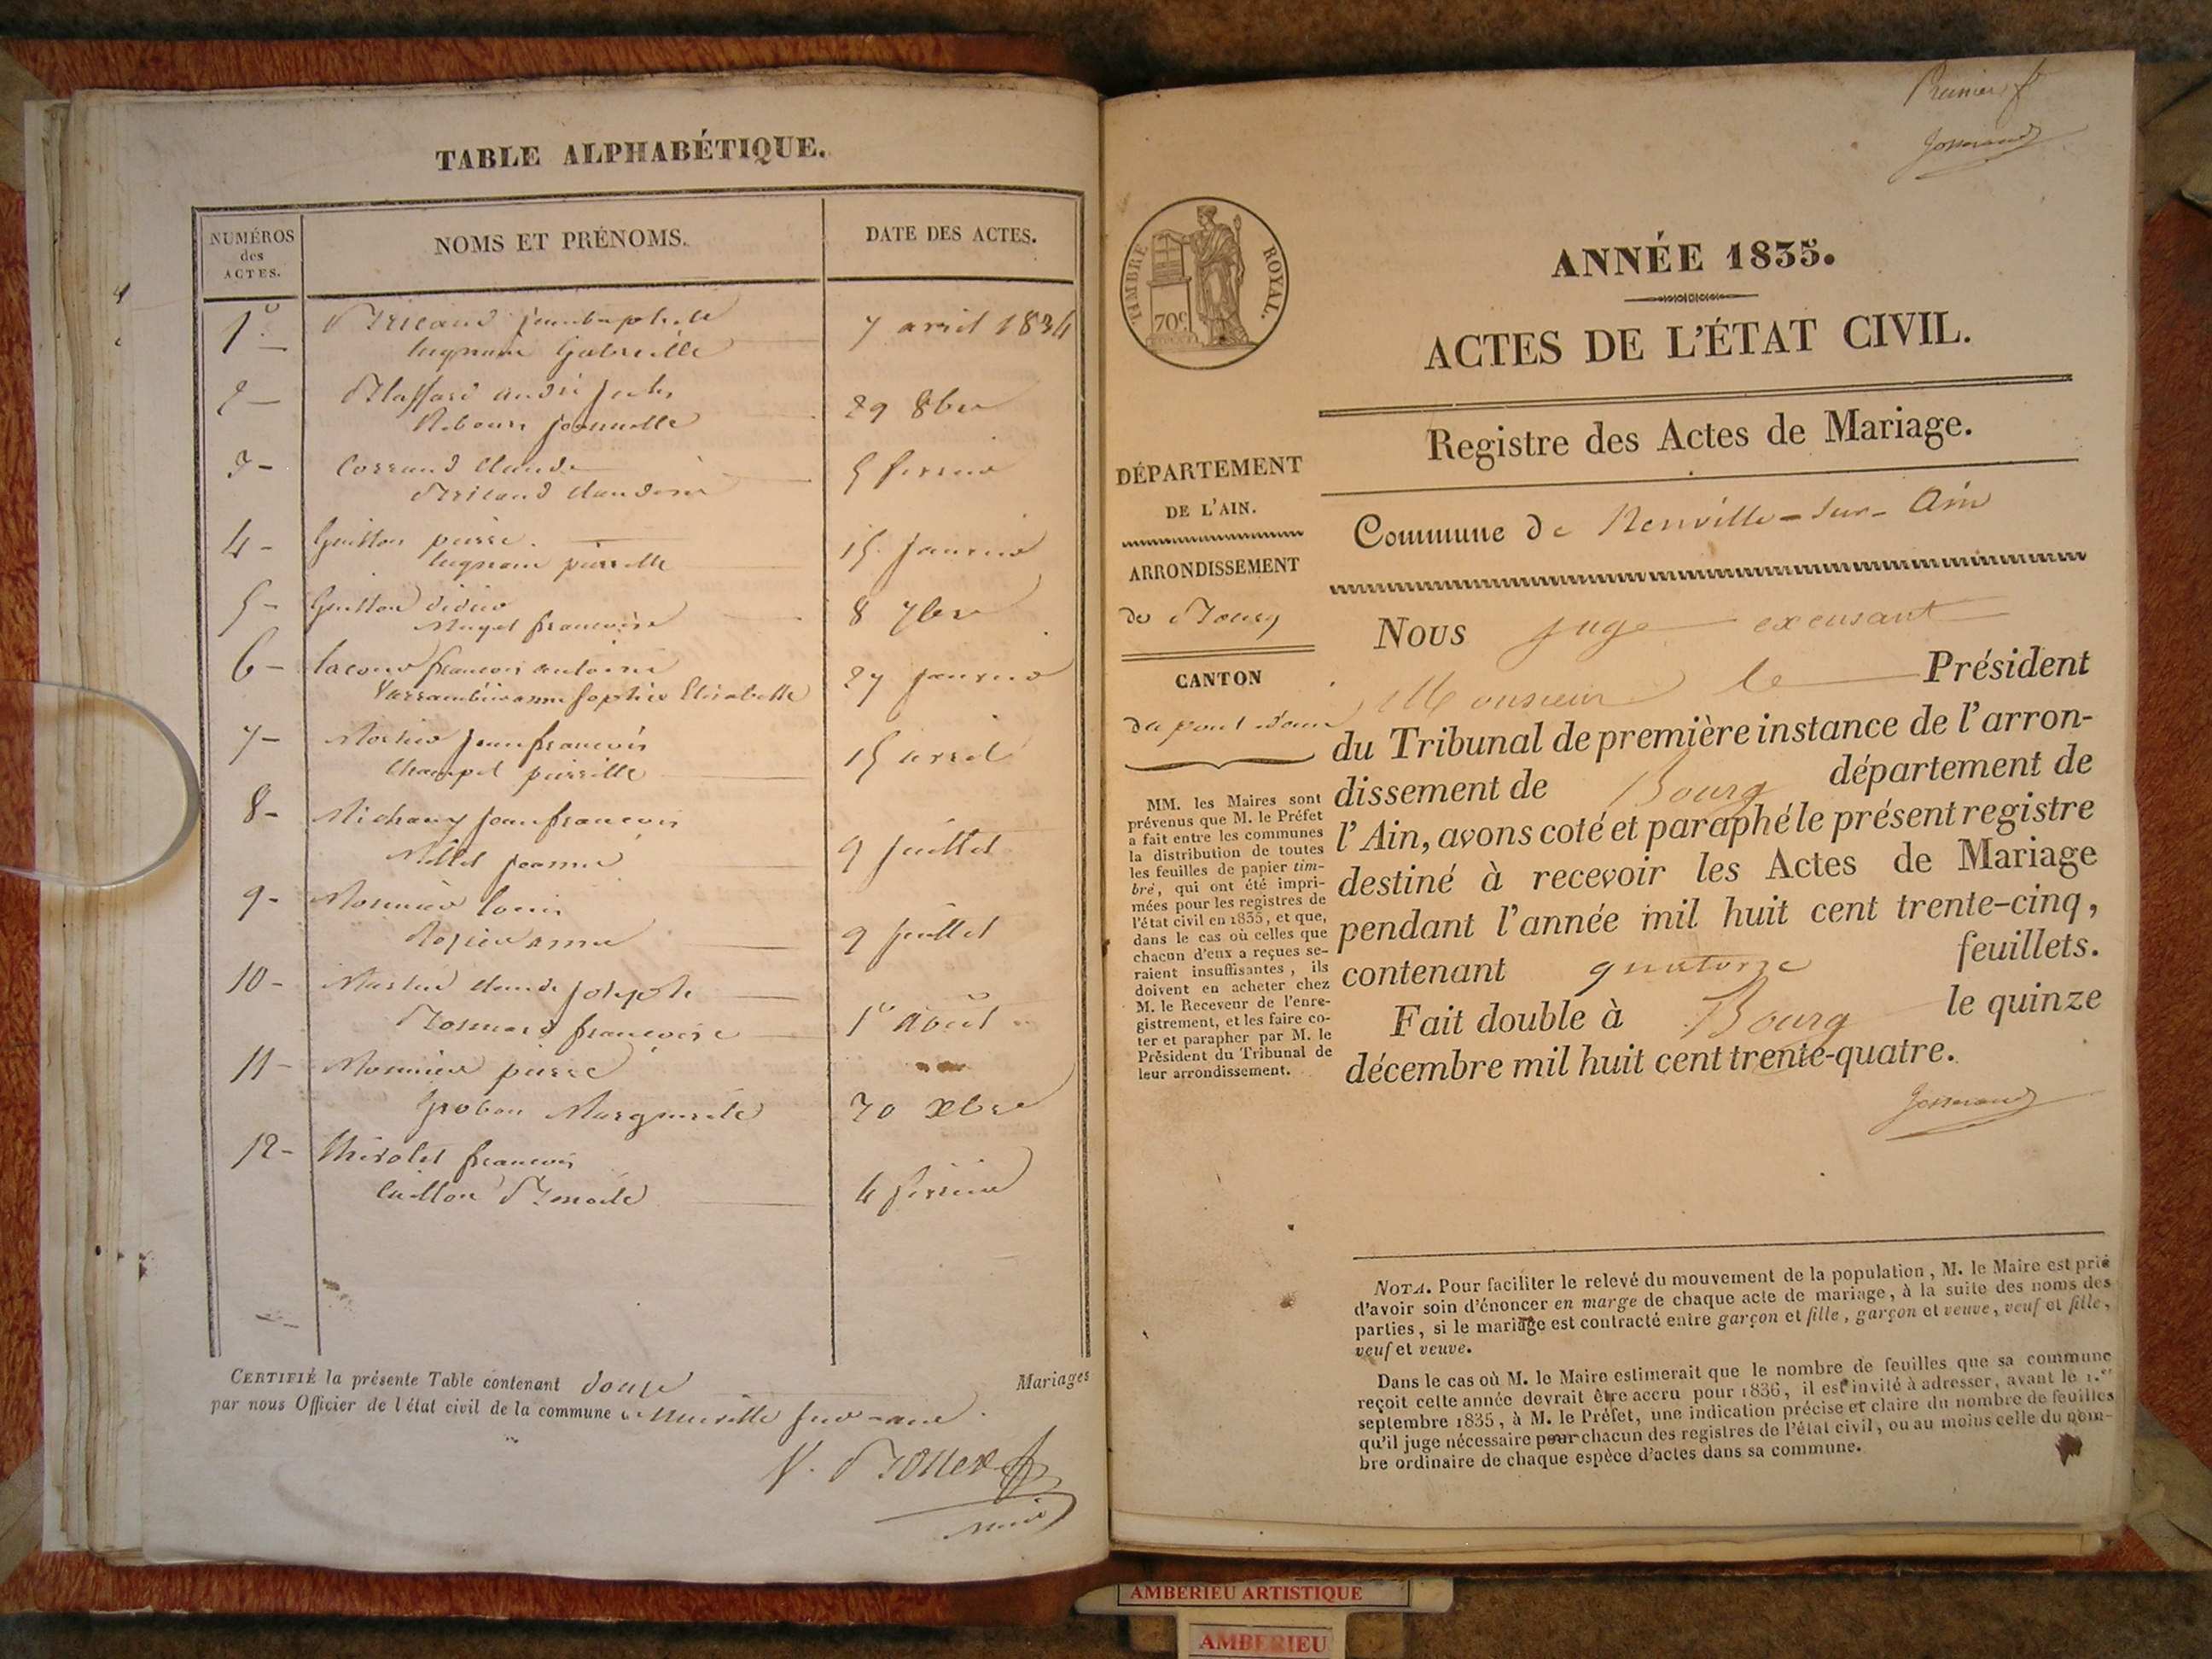 TABLE ALPHABÉTIQUE.
NUMÉROS
des
ACTES.
NOMS ET PRÉNOMS.
DATE DES ACTES.
1º
7 avril 1834
Gabrielle
2 -
29 8bre
3 -
Claude
5 ferrier
4 -
Guillon pierre
15 janvier
5 -
Guillon didier
8 7bre
francoise
6 -
francois antoine
27 janvier
anne Sophie Elisabette
7 -
jean francois
15 avril
pierrette
8 -
Michaux jean francois
9 juillet
Millet jeanne
9 -
Monnier louis
9 juillet
anne
10 -
claude joseph
1er Août
francoise
11 -
Monnier pierre
30 Xbre
Grobon Marguerite
12 -
francois
4 ferrier
CERTIFIÉ la présente Table contenant douze Mariages
par nous Officier de l'état civil de la commune de Neuville sur ain.
Premier f
Josserand
TIMBRE ROYAL.
70c
ANNÉE 1835.
ACTES DE L'ÉTAT CIVIL.
Registre des Actes de Mariage.
Commune de Neuville-sur-Ain
DÉPARTEMENT
DE L'AIN.
ARRONDISSEMENT
de Bourg
CANTON
du pont d'ain
MM. les Maires sont
prévenus que M. le Préfet
a fait entre les communes
la distribution de toutes
les feuilles de papier tim-
bré, qui ont été impri-
mées pour les registres de
l'état civil en 1835, et que,
dans le cas où celles que
chacun d'eux a reçues se-
raient insuffisantes, ils
doivent en acheter chez
M. le Receveur de l'enre-
gistrement, et les faire co-
ter et parapher par M. le
Président du Tribunal de
leur arrondissement.
Nous juge excusant
Monsieur le Président
du Tribunal de première instance de l'arron-
dissement de Bourg département de
l'Ain, avons coté et paraphé le présent registre
destiné à recevoir les Actes de Mariage
pendant l'année mil huit cent trente-cinq,
contenant quatorze feuillets.
Fait double à Bourg le quinze
décembre mil huit cent trente-quatre.
Josserand
NOTA. Pour faciliter le relevé du mouvement de la population, M. le Maire est prié
d'avoir soin d'énoncer en marge de chaque acte de mariage, à la suite des noms des
parties, si le mariage est contracté entre garçon et fille, garçon et veuve, veuf et fille,
veuf et veuve.
Dans le cas où M. le Maire estimerait que le nombre de feuilles que sa commune
reçoit cette année devrait être accru pour 1836, il est invité à adresser, avant le 1.er
septembre 1835, à M. le Préfet, une indication précise et claire du nombre de feuilles
qu'il juge nécessaire pour chacun des registres de l'état civil, ou au moins celle du nom-
bre ordinaire de chaque espèce d'actes dans sa commune.
AMBERIEU ARTISTIQUE
AMBERIEU